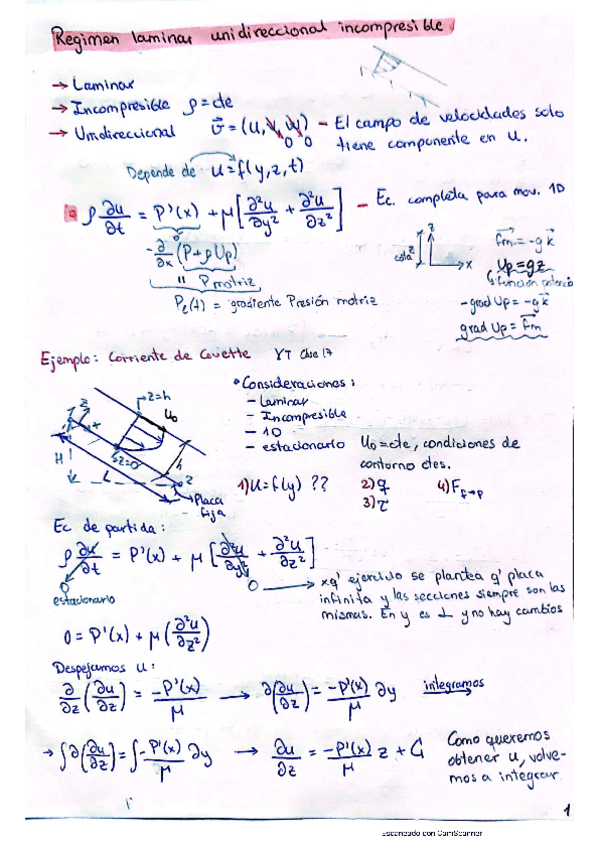 Regimen laminar unidireccional incompresible
→ Laminar
→ Incompresible ρ = cte
→ Unidireccional v⃗ = (u, v, w) – El campo de velocidades solo
0 0 tiene componente en u.
Depende de u = f(y, z, t)
ρ ∂u/∂t = P'(x) + μ[∂²u/∂y² + ∂²u/∂z²] – Ec. completa para mov. 1D
-∂/∂x (P + ρUp)
" P motriz
Pe(t) = gradiente Presión motriz
cota z z x
fm = -g k⃗
Up = gz
función potencia
- grad Up = -g k⃗
grad Up = fm
Ejemplo: Corriente de Couette YT Clase 17
z=h
U₀
z x
H
z=0
L
h
Placa
fija
• Consideraciones:
– Laminar
– Incompresible
– 1D
– estacionario U₀ = cte, condiciones de
contorno ctes.
1) U = f(y) ?? 2) q 4) F f→p
3) τ
Ec de partida:
ρ ∂u/∂t = P'(x) + μ[∂²u/∂y² + ∂²u/∂z²]
0 0 → xq' ejercicio se plantea q' placa
estacionario infinita y las secciones siempre son las
mismas. En y es ⊥ y no hay cambios
0 = P'(x) + μ(∂²u/∂z²)
Despejamos u:
∂/∂z (∂u/∂z) = -P'(x)/μ → ∂(∂u/∂z) = -P'(x)/μ ∂y integramos
→ ∫∂(∂u/∂z) = ∫-P'(x)/μ ∂y → ∂u/∂z = -P'(x)/μ z + C₁ Como queremos
obtener u, volve-
mos a integrar.
1
Escaneado con CamScanner